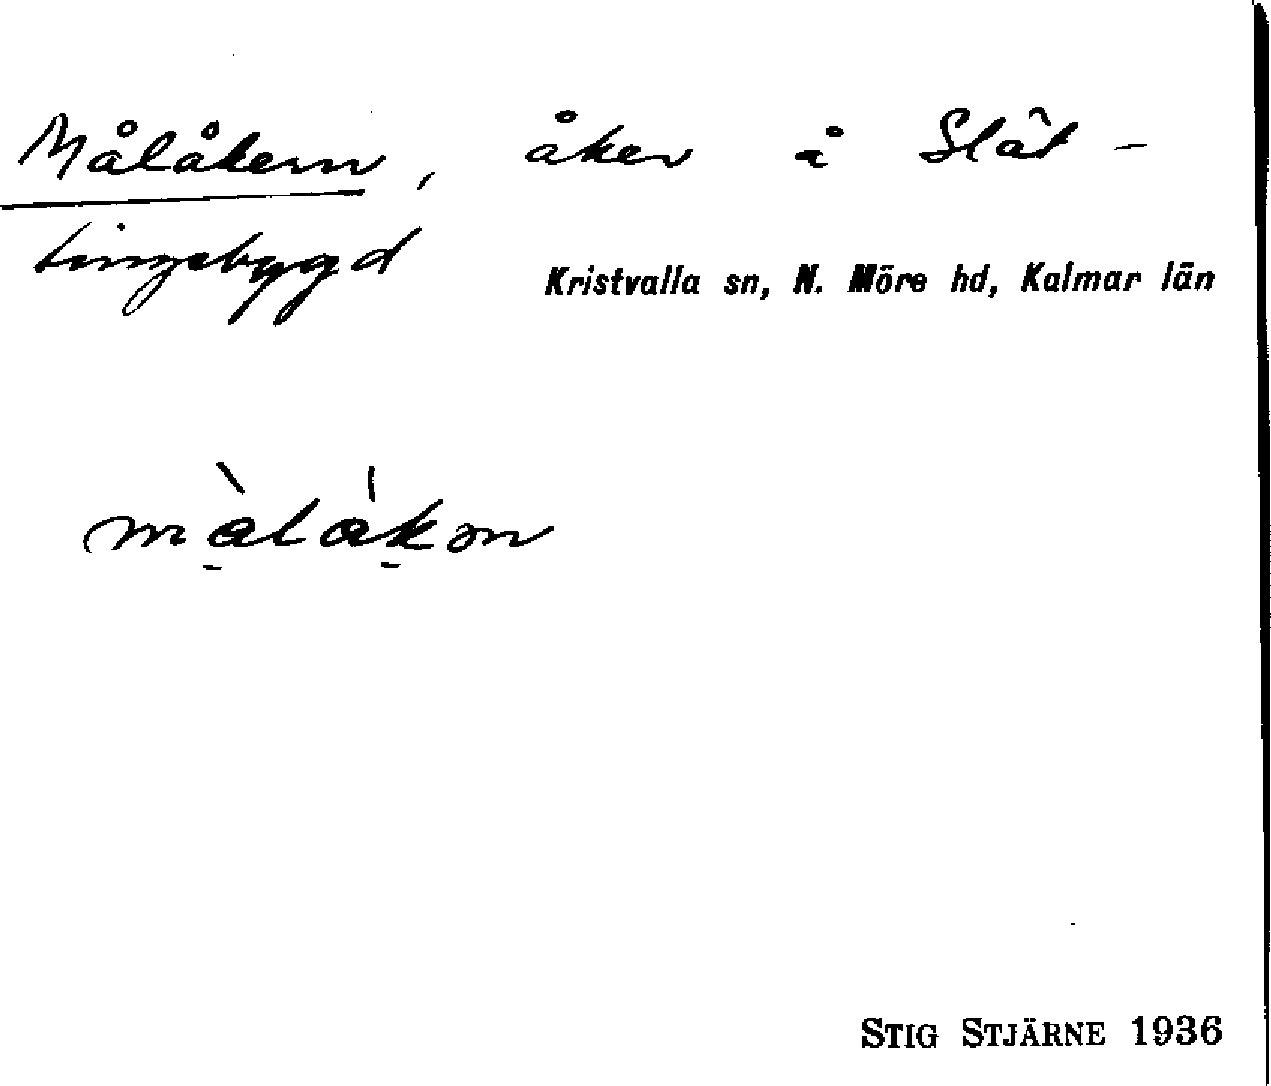 Målåkern, åker å Slät-
tingebygd
Kristvalla sn, N. Möre hd, Kalmar län
STIG STJÄRNE 1936